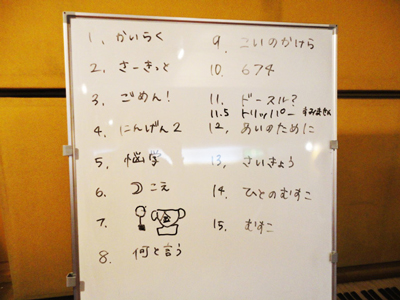 1. かいらく
2. さーきっと
3. ごめん!
4. にんげん2
5. 悩学
6. こえ
7.
8. 何と言う
9. こいのかけら
10. 674
11. ドースル?
11.5 トリッパー すみません
12. あいのために
13. さいきょう
14. ひとのむすこ
15. むすこ